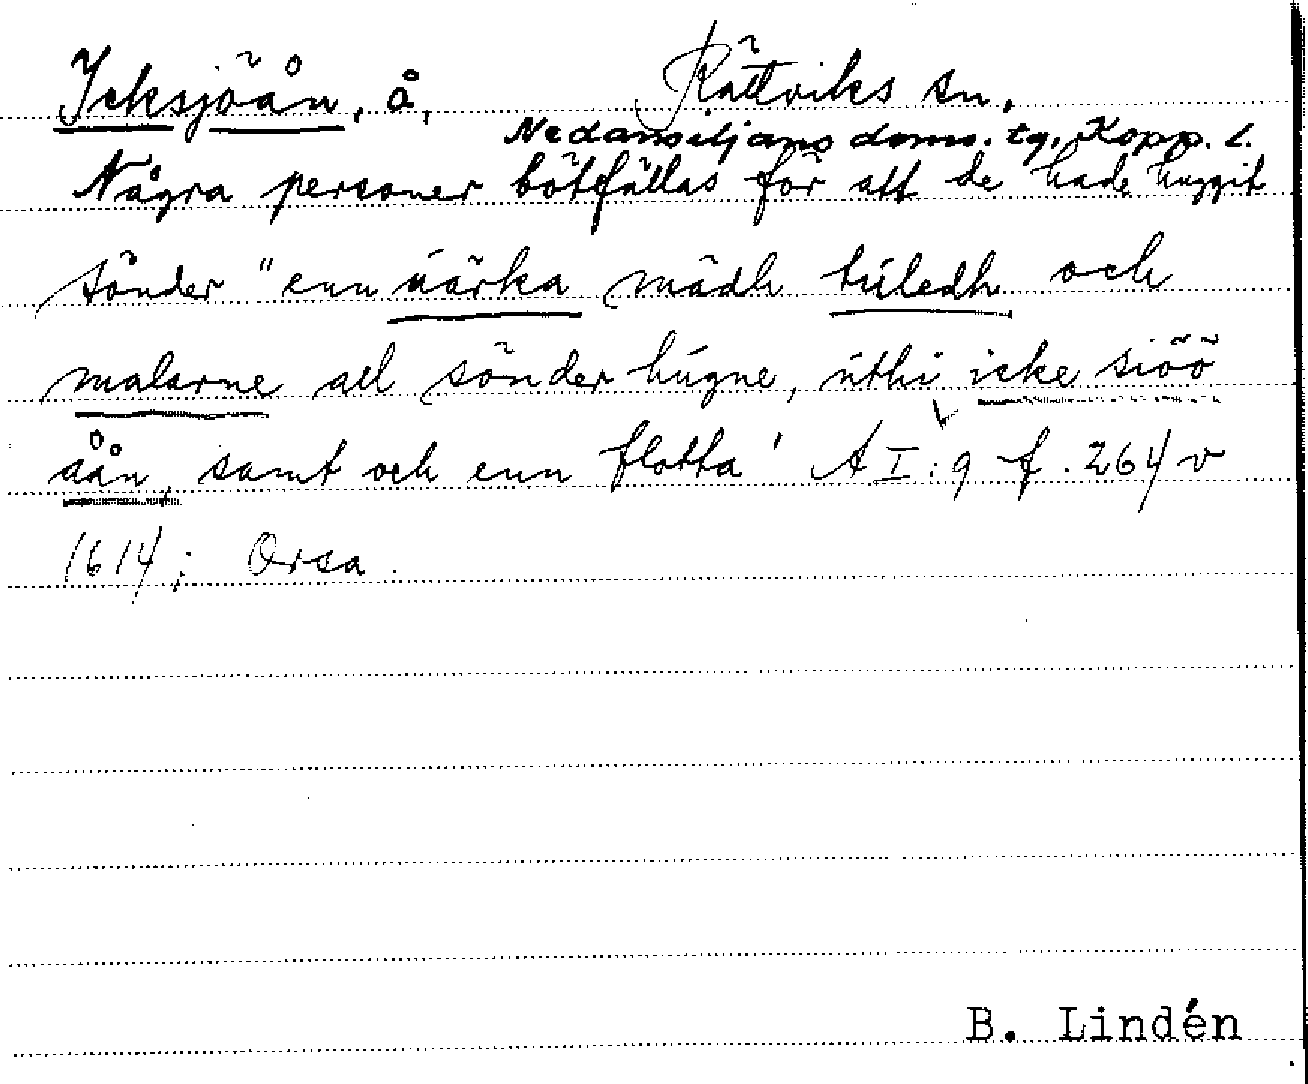 Icksjöån, å, Rättviks sn,
Nedansiljans doms. tg, Kopp. l.
Några personer bötfällas för att de hade huggit
sönder "enn uärka mädh tiledh och
malarne all sönder húgne, úthi icke siöö
åån, samt och enn flotta' A I:9 f. 264 v
1614; Orsa.
B. Lindén